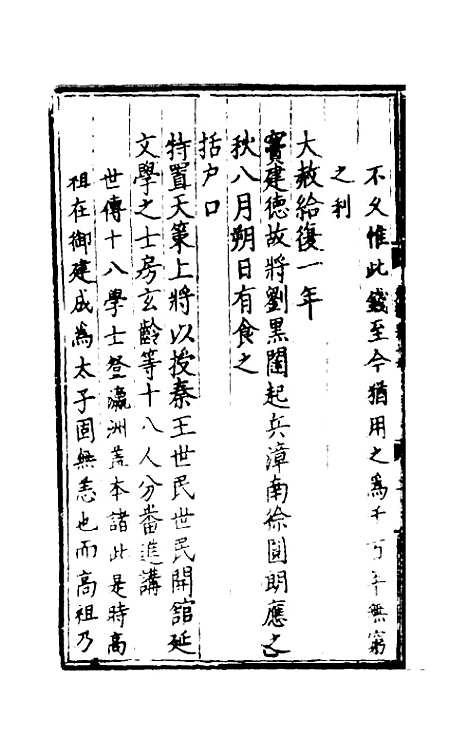 不久惟此錢至今猶用之為千百年無窮
之利
大赦給復一年
竇建德故將劉黑闥起兵漳南徐圓朗應之
秋八月朔日有食之
括户口
特置天策上將以授秦王世民世民開舘延
文學之士房玄齡等十八人分番進講
世傳十八學士登瀛洲盖本諸此是時高
祖在御建成為太子固無恙也而高祖乃